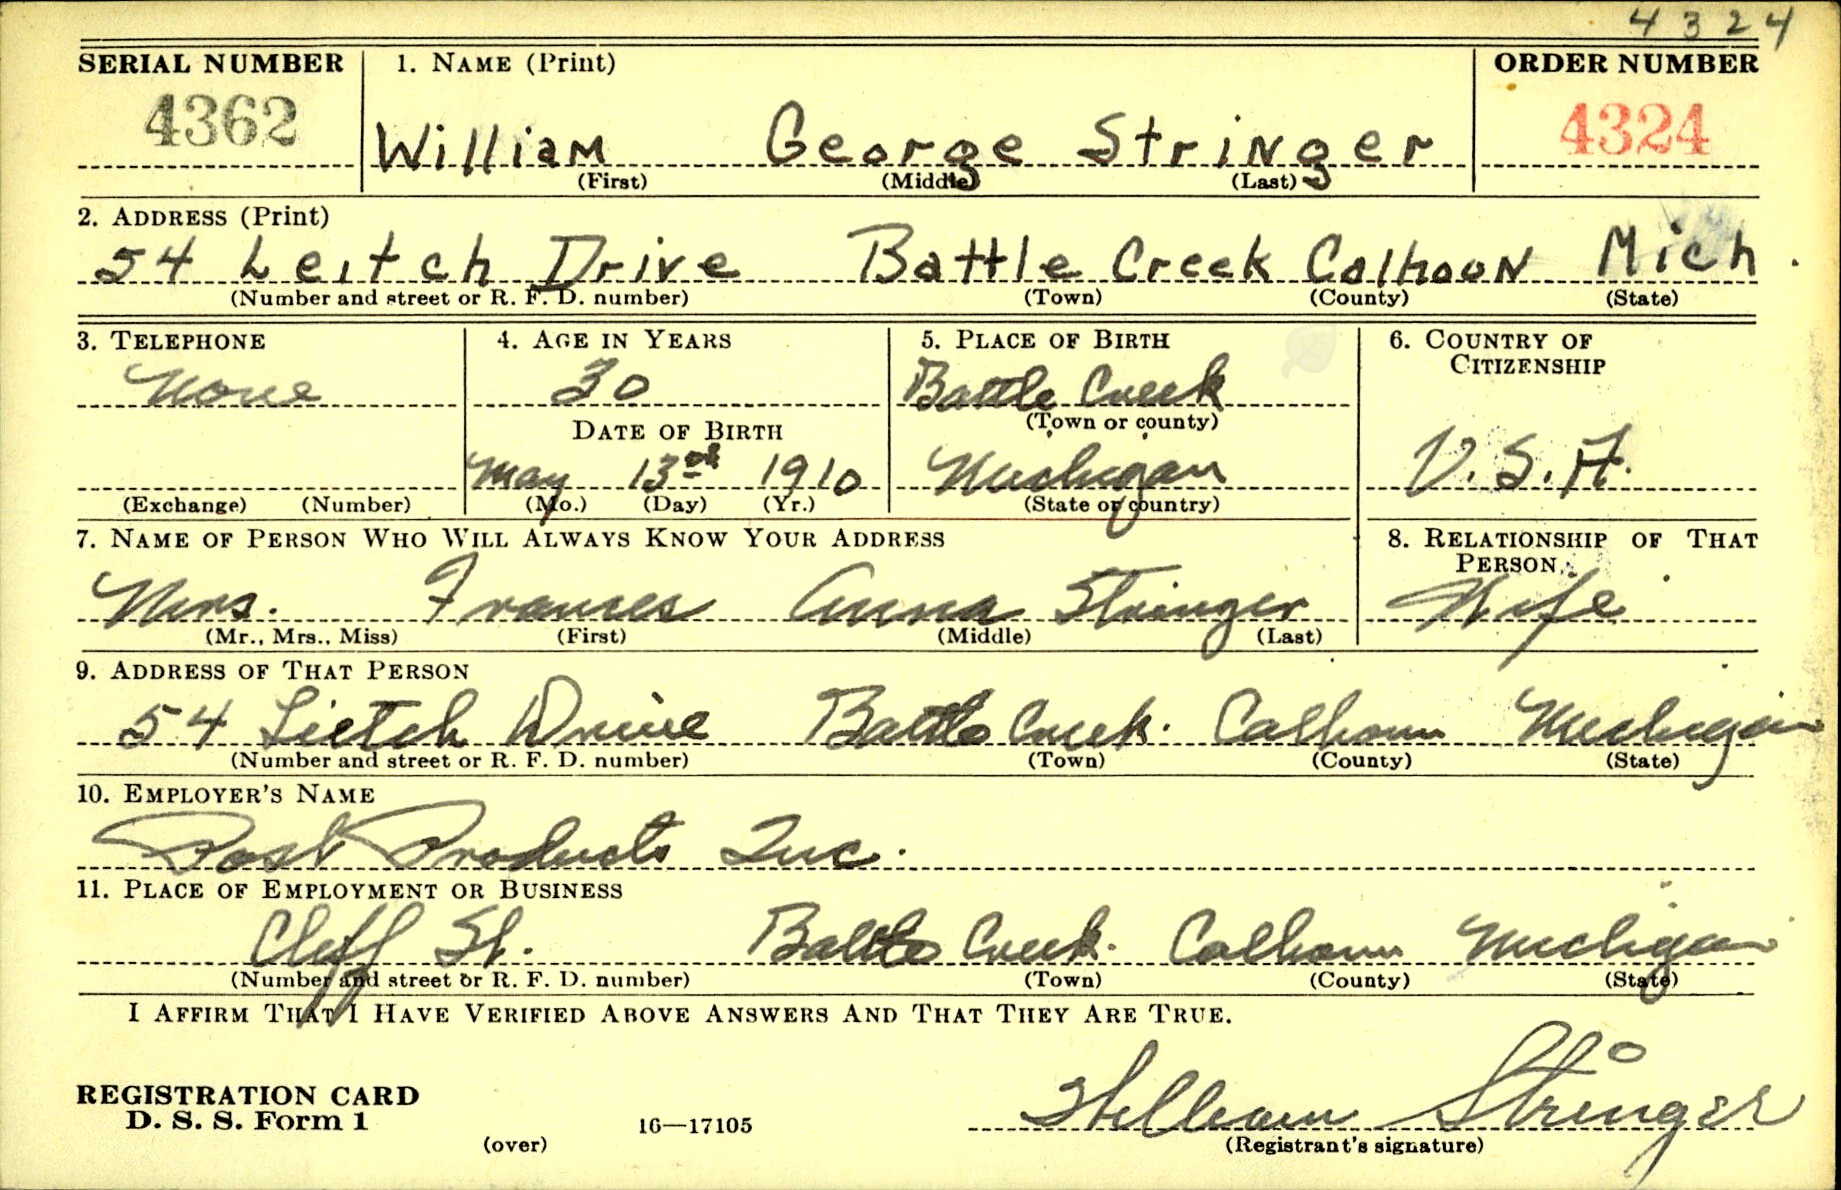 4324
SERIAL NUMBER 1. NAME (Print) ORDER NUMBER
4362 William George Stringer 4324
(First) (Middle) (Last)
2. ADDRESS (Print)
54 Leitch Drive Battle Creek Calhoun Mich.
(Number and street or R. F. D. number) (Town) (County) (State)
3. TELEPHONE 4. AGE IN YEARS 5. PLACE OF BIRTH 6. COUNTRY OF CITIZENSHIP
None 30 Battle Creek
DATE OF BIRTH (Town or county)
May 13th 1910 Michigan U.S.A.
(Exchange) (Number) (Mo.) (Day) (Yr.) (State or country)
7. NAME OF PERSON WHO WILL ALWAYS KNOW YOUR ADDRESS 8. RELATIONSHIP OF THAT PERSON
Mrs. Frances Anna Stringer Wife
(Mr., Mrs., Miss) (First) (Middle) (Last)
9. ADDRESS OF THAT PERSON
54 Lietch Drive Battle Creek. Calhoun Michigan
(Number and street or R. F. D. number) (Town) (County) (State)
10. EMPLOYER'S NAME
Post Products Inc.
11. PLACE OF EMPLOYMENT OR BUSINESS
Cliff St. Battle Creek. Calhoun Michigan
(Number and street or R. F. D. number) (Town) (County) (State)
I AFFIRM THAT I HAVE VERIFIED ABOVE ANSWERS AND THAT THEY ARE TRUE.
REGISTRATION CARD
D. S. S. Form 1 16—17105 William Stringer
(over) (Registrant's signature)